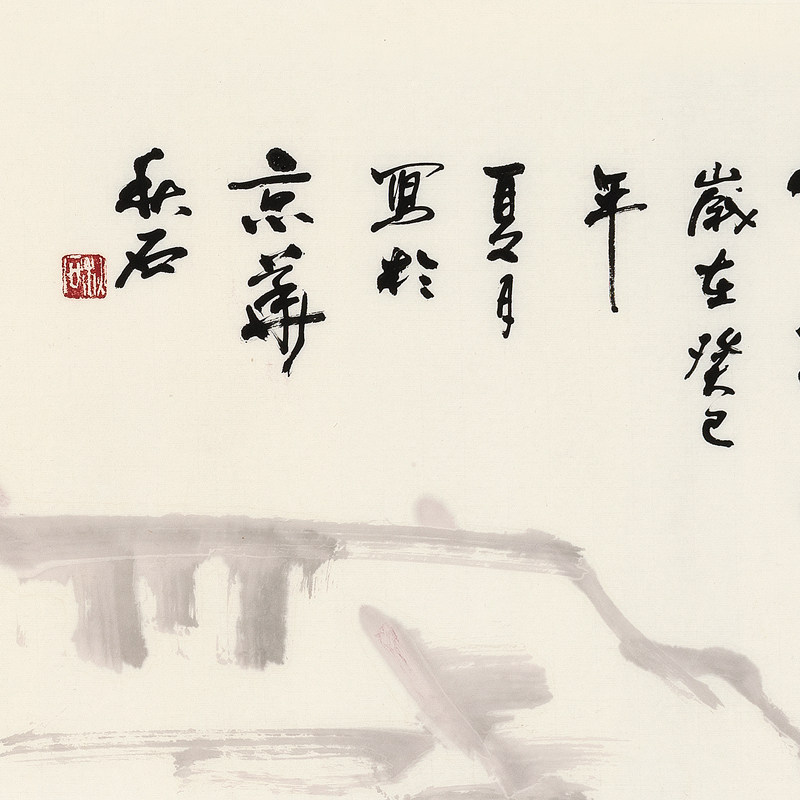 歲在癸巳
年
夏月
寫於
京華
秋石